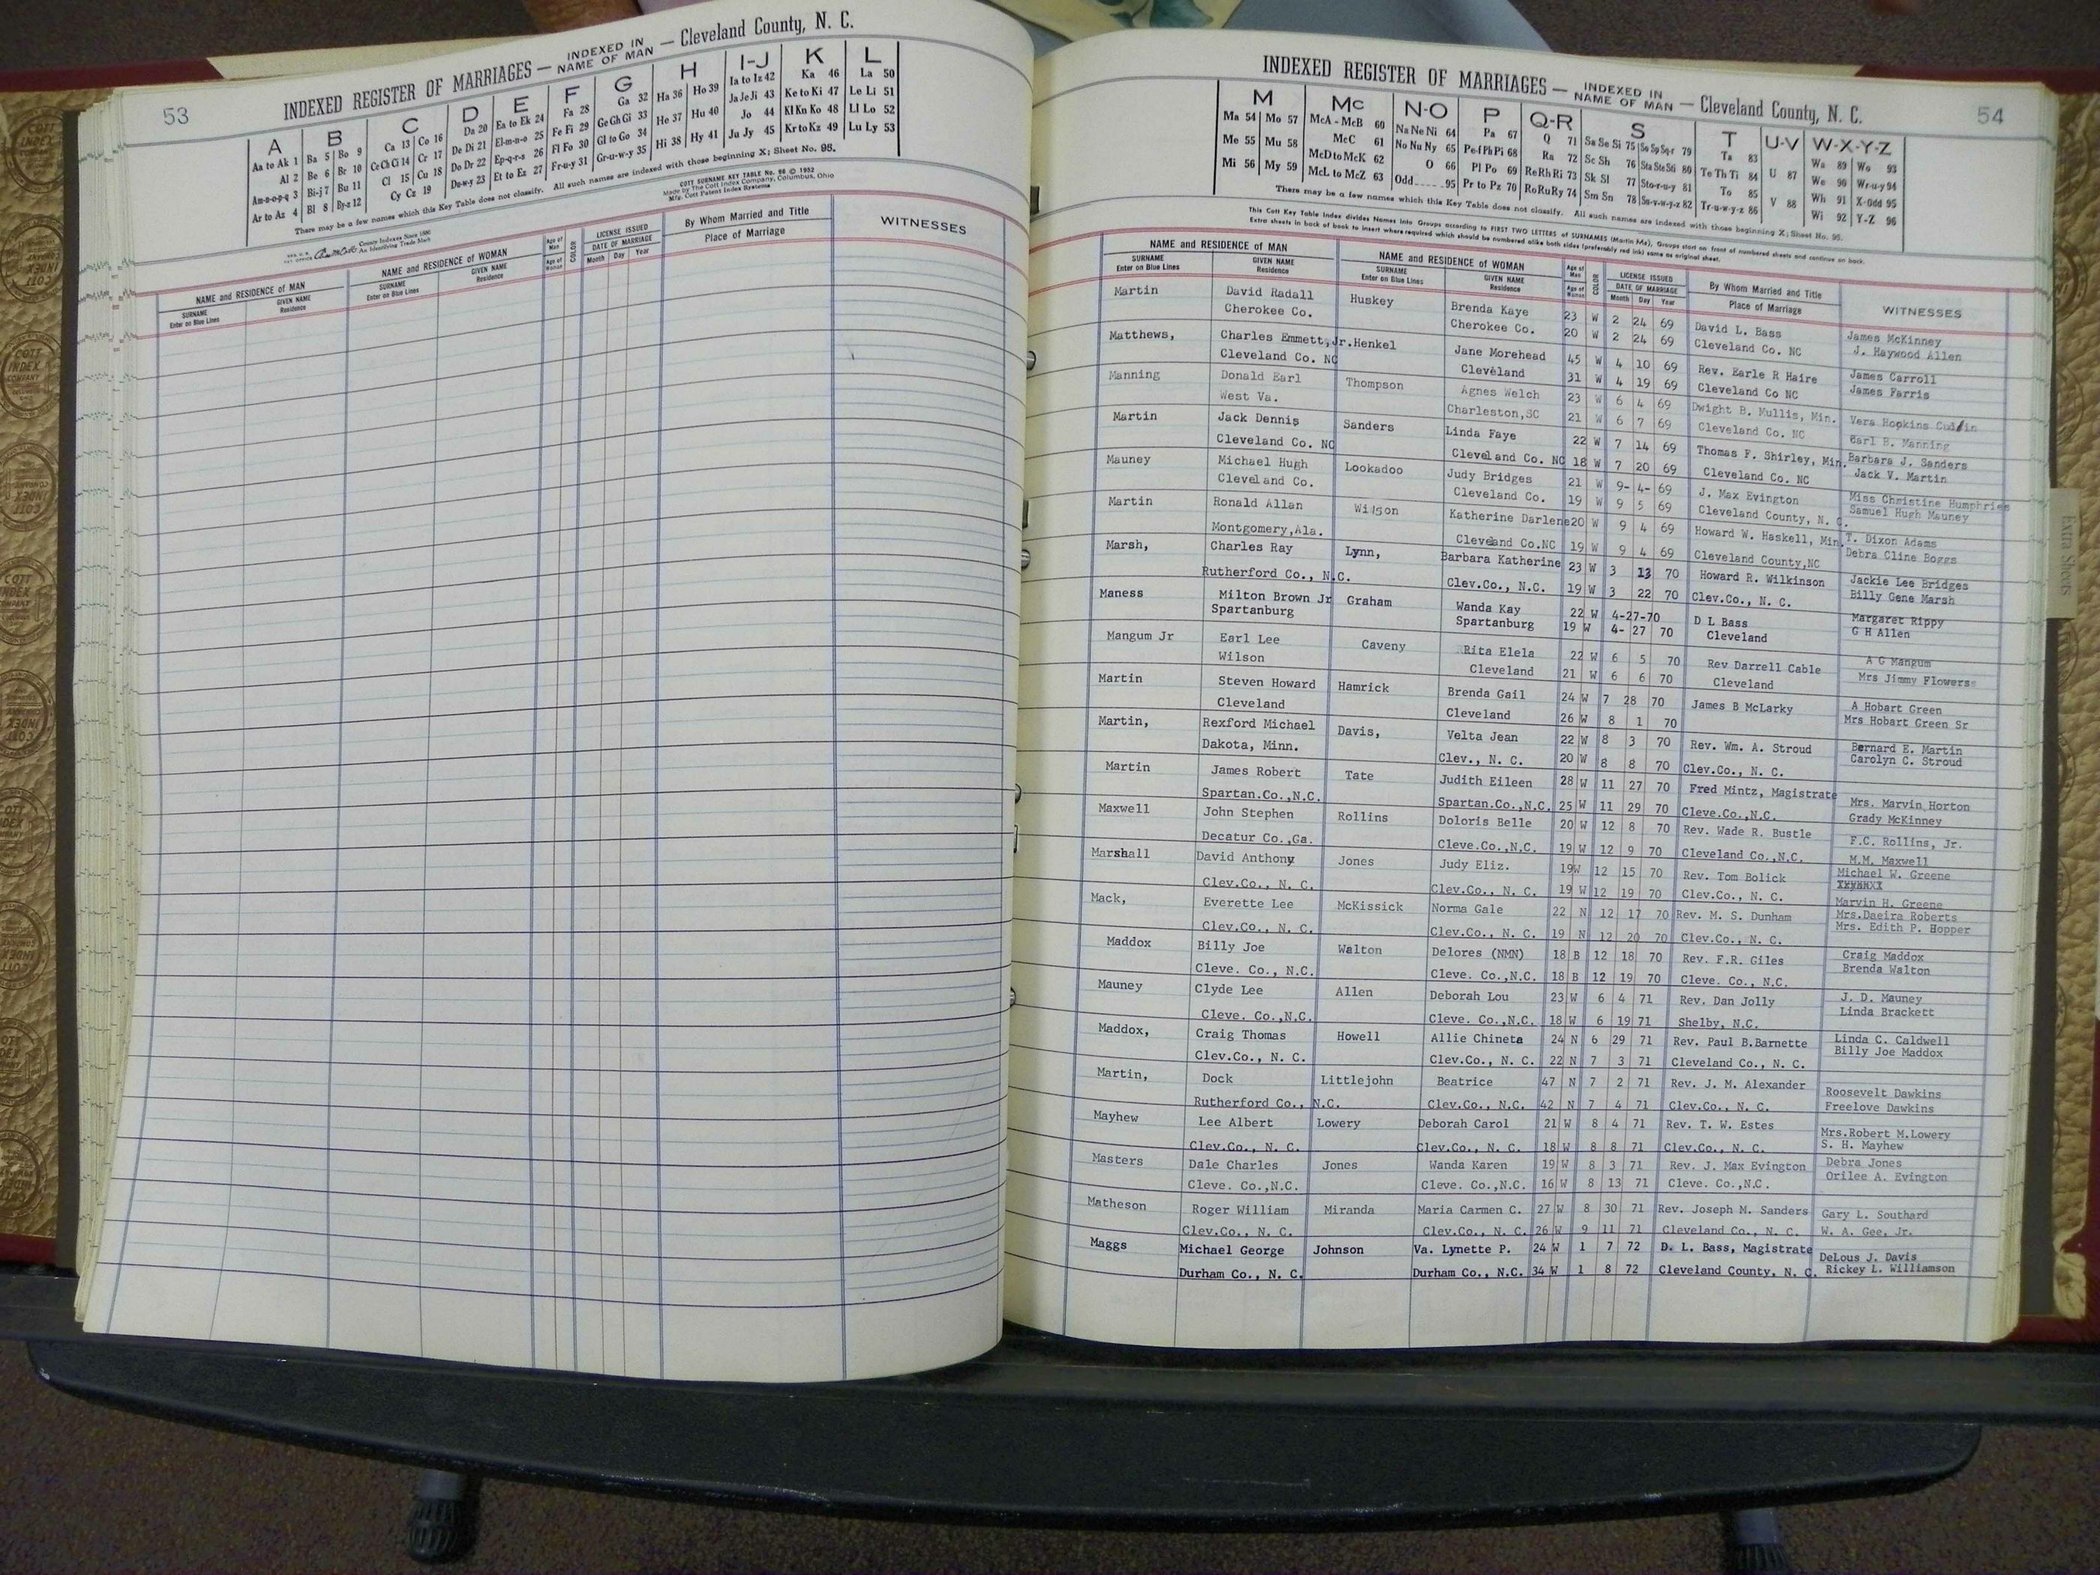 53
INDEXED REGISTER OF MARRIAGES — INDEXED IN NAME OF MAN — Cleveland County, N. C.
A B C D E F G H I-J K L
Aa to Ak 1 Ba 5 Bo 9 Ca 13 Co 16 Da 20 Ea to Ek 24 Fa 28 Ga 32 Ha 36 Ho 39 Ia to Iz 42 Ka 46 La 50
Al 2 Be 6 Br 10 Ce Ch Ci 14 Cr 17 De Di 21 El-m-n-o 25 Fe Fi 29 Ge Gh Gi 33 He 37 Hu 40 Ja Je Ji 43 Ke to Ki 47 Le Li 51
Am-n-o-p-q 3 Bi-j 7 Bu 11 Cl 15 Cu 18 Do Dr 22 Ep-q-r-s 26 Fl Fo 30 Gl to Go 34 Hi 38 Hy 41 Jo 44 Kl Kn Ko 48 Ll Lo 52
Ar to Az 4 Bl 8 By-z 12 Cy Cz 19 Du-w-y 23 Et to Ez 27 Fr-u-y 31 Gr-u-w-y 35 Ju Jy 45 Kr to Kz 49 Lu Ly 53
There may be a few names which this Key Table does not classify. All such names are indexed with those beginning X; Sheet No. 95.
COTT SURNAME KEY TABLE No. 96 © 1952
Made by The Cott Index Company, Columbus, Ohio
Mfg. Cott Patent Index Systems
County Indexes Since 1880
An Identifying Trade Mark
NAME and RESIDENCE of MAN NAME and RESIDENCE of WOMAN Age of Man Age of Woman COLOR LICENSE ISSUED DATE OF MARRIAGE By Whom Married and Title Place of Marriage WITNESSES
SURNAME Enter on Blue Lines GIVEN NAME Residence SURNAME Enter on Blue Lines GIVEN NAME Residence Month Day Year
54
INDEXED REGISTER OF MARRIAGES — INDEXED IN NAME OF MAN — Cleveland County, N. C.
M Mc N-O P Q-R S T U-V W-X-Y-Z
Ma 54 Mo 57 McA - McB 60 Na Ne Ni 64 Pa 67 Q 71 Sa Se Si 75 So Sp Sq-r 79 Ta 83 U 87 Wa 89 Wo 93
Me 55 Mu 58 McC 61 No Nu Ny 65 Pe-f Ph Pi 68 Ra 72 Sc Sh 76 Sta Ste Sti 80 Te Th Ti 84 V 88 We 90 Wr-u-y 94
Mi 56 My 59 McD to McK 62 O 66 Pl Po 69 Re Rh Ri 73 Sk Sl 77 Sto-r-u-y 81 To 85 Wh 91 X-Odd 95
McL to McZ 63 Odd......95 Pr to Pz 70 Ro Ru Ry 74 Sm Sn 78 Su-v-w-y-z 82 Tr-u-w-y-z 86 Wi 92 Y-Z 96
There may be a few names which this Key Table does not classify. All such names are indexed with those beginning X; Sheet No. 95.
This Cott Key Table Index divides Names into Groups according to FIRST TWO LETTERS of SURNAMES (Martin Ma), Groups start on front of numbered sheets and continue on back.
Extra sheets in back of book to insert where required which should be numbered alike both sides (preferably red ink) same as original sheet.
NAME and RESIDENCE of MAN NAME and RESIDENCE of WOMAN Age of Man Age of Woman COLOR LICENSE ISSUED DATE OF MARRIAGE By Whom Married and Title Place of Marriage WITNESSES
SURNAME Enter on Blue Lines GIVEN NAME Residence SURNAME Enter on Blue Lines GIVEN NAME Residence Month Day Year
Martin David Radall Huskey Brenda Kaye 23 W 2 24 69 David L. Bass James McKinney
Cherokee Co. Cherokee Co. 20 W 2 24 69 Cleveland Co. NC J. Haywood Allen
Matthews, Charles Emmett,Jr. Henkel Jane Morehead 45 W 4 10 69 Rev. Earle R Haire James Carroll
Cleveland Co. NC Cleveland 31 W 4 19 69 Cleveland Co NC James Farris
Manning Donald Earl Thompson Agnes Welch 23 W 6 4 69 Dwight B. Mullis, Min. Vera Hopkins
West Va. Charleston,SC 21 W 6 7 69 Cleveland Co. NC Earl B. Manning
Martin Jack Dennis Sanders Linda Faye 22 W 7 14 69 Thomas F. Shirley, Min. Barbara J. Sanders
Cleveland Co. NC Cleveland Co. NC 18 W 7 20 69 Cleveland Co. NC Jack V. Martin
Mauney Michael Hugh Lookadoo Judy Bridges 21 W 9- 4- 69 J. Max Evington Miss Christine Humphries
Cleveland Co. Cleveland Co. 19 W 9 5 69 Cleveland County, N. C. Samuel Hugh Mauney
Martin Ronald Allan Wilson Katherine Darlene 20 W 9 4 69 Howard W. Haskell, Min. T. Dixon Adams
Montgomery,Ala. Cleveland Co.NC 19 W 9 4 69 Cleveland County,NC Debra Cline Boggs
Marsh, Charles Ray Lynn, Barbara Katherine 23 W 3 13 70 Howard R. Wilkinson Jackie Lee Bridges
Rutherford Co., N.C. Clev.Co., N.C. 19 W 3 22 70 Clev.Co., N. C. Billy Gene Marsh
Maness Milton Brown Jr Graham Wanda Kay 22 W 4-27-70 D L Bass Margaret Rippy
Spartanburg Spartanburg 19 W 4- 27 70 Cleveland G H Allen
Mangum Jr Earl Lee Caveny Rita Elela 22 W 6 5 70 Rev Darrell Cable A G Mangum
Wilson Cleveland 21 W 6 6 70 Cleveland Mrs Jimmy Flowers
Martin Steven Howard Hamrick Brenda Gail 24 W 7 28 70 James B McLarky A Hobart Green
Cleveland Cleveland 26 W 8 1 70 Mrs Hobart Green Sr
Martin, Rexford Michael Davis, Velta Jean 22 W 8 3 70 Rev. Wm. A. Stroud Bernard E. Martin
Dakota, Minn. Clev., N. C. 20 W 8 8 70 Clev.Co., N. C. Carolyn C. Stroud
Martin James Robert Tate Judith Eileen 28 W 11 27 70 Fred Mintz, Magistrate Mrs. Marvin Horton
Spartan.Co.,N.C. Spartan.Co.,N.C. 25 W 11 29 70 Cleve.Co.,N.C. Grady McKinney
Maxwell John Stephen Rollins Doloris Belle 20 W 12 8 70 Rev. Wade R. Bustle F.C. Rollins, Jr.
Decatur Co.,Ga. Cleve.Co.,N.C. 19 W 12 9 70 Cleveland Co.,N.C. M.M. Maxwell
Marshall David Anthony Jones Judy Eliz. 19 W 12 15 70 Rev. Tom Bolick Michael W. Greene
Clev.Co., N. C. Clev.Co., N. C. 19 W 12 19 70 Clev.Co., N. C. Marvin H. Greene
Mack, Everette Lee McKissick Norma Gale 22 N 12 17 70 Rev. M. S. Dunham Mrs.Daeira Roberts
Clev.Co., N. C. Clev.Co., N. C. 19 N 12 20 70 Clev.Co., N. C. Mrs. Edith P. Hopper
Maddox Billy Joe Walton Delores (NMN) 18 B 12 18 70 Rev. F.R. Giles Craig Maddox
Cleve. Co., N.C. Cleve. Co.,N.C. 18 B 12 19 70 Cleve. Co., N.C. Brenda Walton
Mauney Clyde Lee Allen Deborah Lou 23 W 6 4 71 Rev. Dan Jolly J. D. Mauney
Cleve. Co.,N.C. Cleve. Co.,N.C. 18 W 6 19 71 Shelby, N.C. Linda Brackett
Maddox, Craig Thomas Howell Allie Chineta 24 N 6 29 71 Rev. Paul B.Barnette Linda C. Caldwell
Clev.Co., N. C. Clev.Co., N. C. 22 N 7 3 71 Cleveland Co., N. C. Billy Joe Maddox
Martin, Dock Littlejohn Beatrice 47 N 7 2 71 Rev. J. M. Alexander Roosevelt Dawkins
Rutherford Co., N.C. Clev.Co., N.C. 42 N 7 4 71 Clev.Co., N. C. Freelove Dawkins
Mayhew Lee Albert Lowery Deborah Carol 21 W 8 4 71 Rev. T. W. Estes Mrs.Robert M.Lowery
Clev.Co., N. C. Clev.Co., N. C. 18 W 8 8 71 Clev.Co., N. C. S. H. Mayhew
Masters Dale Charles Jones Wanda Karen 19 W 8 3 71 Rev. J. Max Evington Debra Jones
Cleve. Co.,N.C. Cleve. Co.,N.C. 16 W 8 13 71 Cleve. Co.,N.C. Orilee A. Evington
Matheson Roger William Miranda Maria Carmen C. 27 W 8 30 71 Rev. Joseph M. Sanders Gary L. Southard
Clev.Co., N. C. Clev.Co., N. C. 26 W 9 11 71 Cleveland Co., N. C. W. A. Gee, Jr.
Maggs Michael George Johnson Va. Lynette P. 24 W 1 7 72 D. L. Bass, Magistrate DeLous J. Davis
Durham Co., N. C. Durham Co., N.C. 34 W 1 8 72 Cleveland County, N. C. Rickey L. Williamson
Extra Sheets